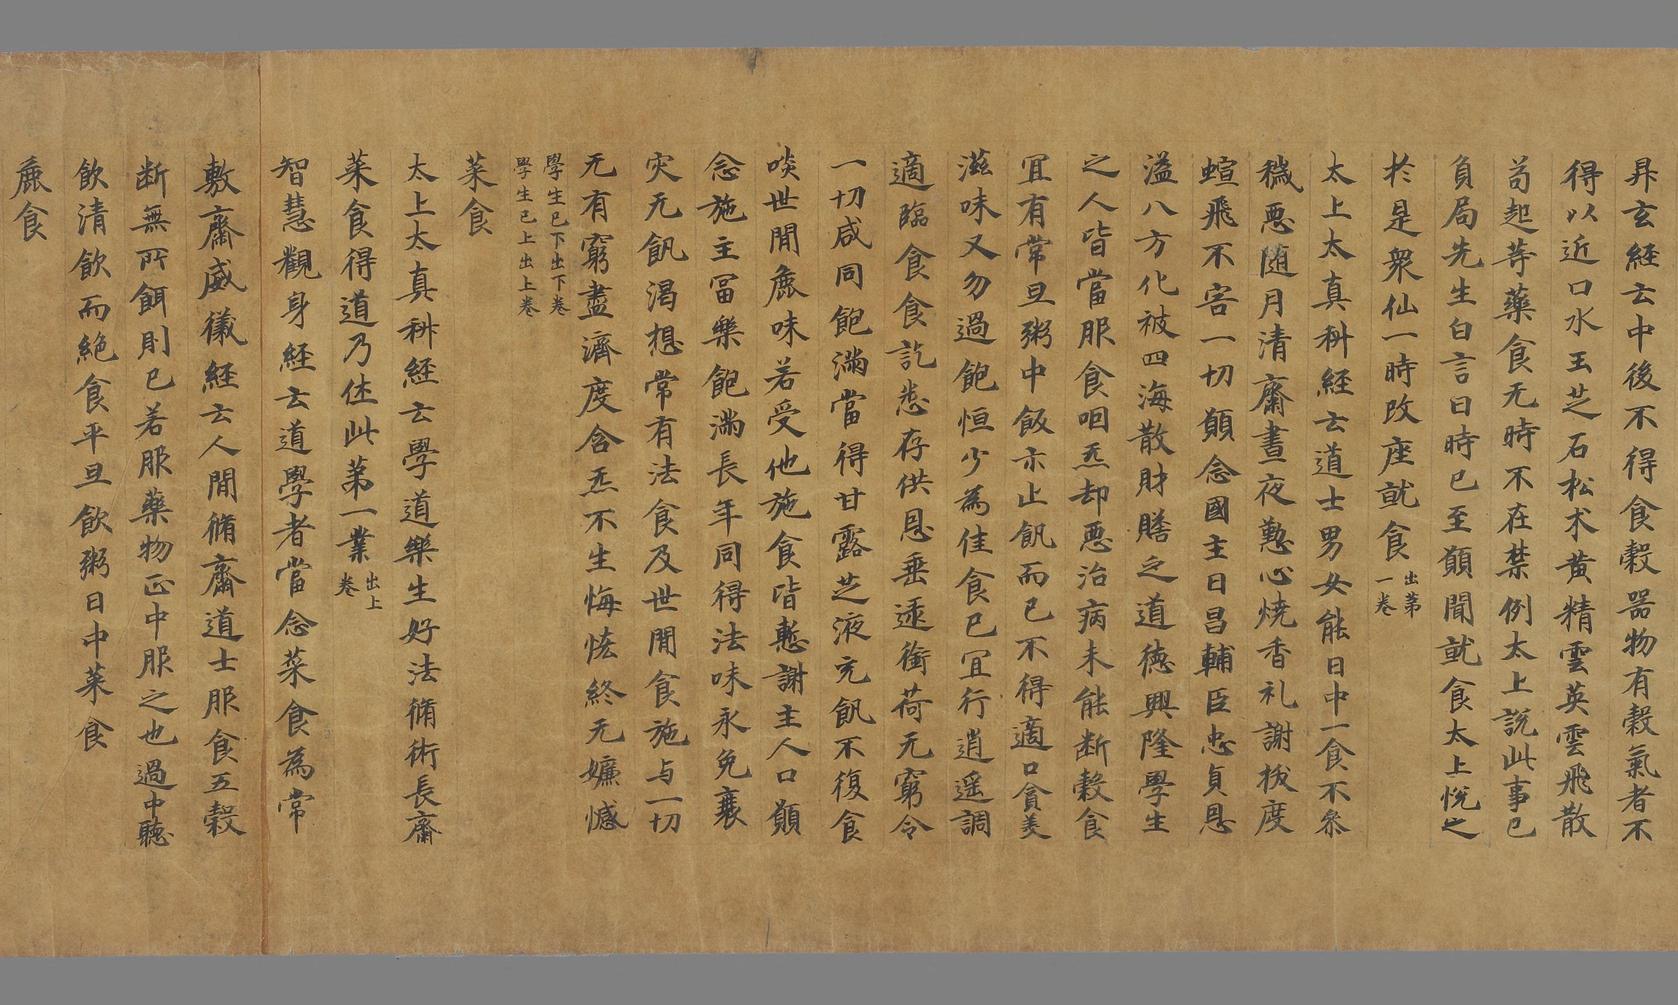 昇玄經云中後不得食穀器物有穀氣者不
得以近口水玉芝石松术黄精雲英雲飛散
苟起等藥食无時不在禁例太上說此事已
負局先生白言曰時已至願聞就食太上悅之
於是衆仙一時改座就食出第一卷
太上太真科經云道士男女能日中一食不參
穢惡随月清齋晝夜懃心焼香礼謝拔度
蝖飛不害一切願念國主日昌輔臣忠貞恩
溢八方化被四海散財贍之道德興隆學生
之人皆當服食咽炁却惡治病未能断穀食
宜有常旦粥中飯亦止飢而已不得適口貪美
滋味又勿過飽恒少為佳食已宜行逍遥調
適臨食食訖悉存供恩垂逮銜荷无窮令
一切咸同飽滿當得甘露芝液充飢不復食
啖世間麁味若受他施食皆慙謝主人口願
念施主冨樂飽滿長年同得法味永免襄
灾无飢渴想常有法食及世間食施与一切
无有窮盡濟度含炁不生悔悋終无嫌憾
學生已下出下卷
學生已上出上卷
菜食
太上太真科經云學道樂生好法脩術長齋
菜食得道乃住此第一業出上卷
智慧觀身經云道學者當念菜食為常
敷齋威儀經云人間脩齋道士服食五穀
断無所餌則已若服藥物正中服之也過中聽
飲清飲而絶食平旦飲粥日中菜食
麁食